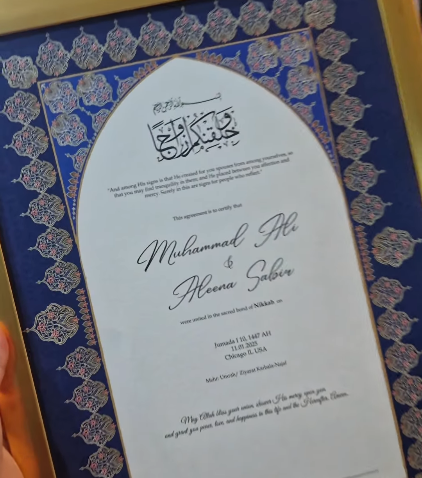 بسم الله الرحمن الرحيم
وخلقناكم أزواجا
"And among His signs is that He created for you spouses from among yourselves, so
that you may find tranquility in them; and He placed between you affection and
mercy. Surely in this are signs for people who reflect."
This agreement is to certify that
Muhammad Ali
&
Aleena Sabir
were united in the sacred bond of Nikkah on
Jumada I 10, 1447 AH
11.01.2025
Chicago IL, USA
Mehr: Ziyarat Karbala/Najaf
May Allah bless your union, shower His mercy upon you,
and grant you peace, love, and happiness in this life and the Hereafter, Ameen.